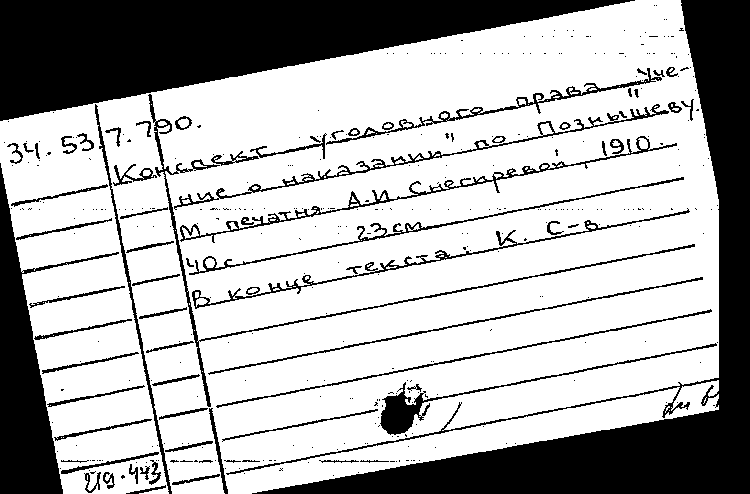 34.53.7.790.
Конспект уголовного права „Уче-
ние о наказании" по Познышеву.
М, печатня А.И. Снегиревой, 1910.
40с. 23см
В конце текста: К. С-в
219.443